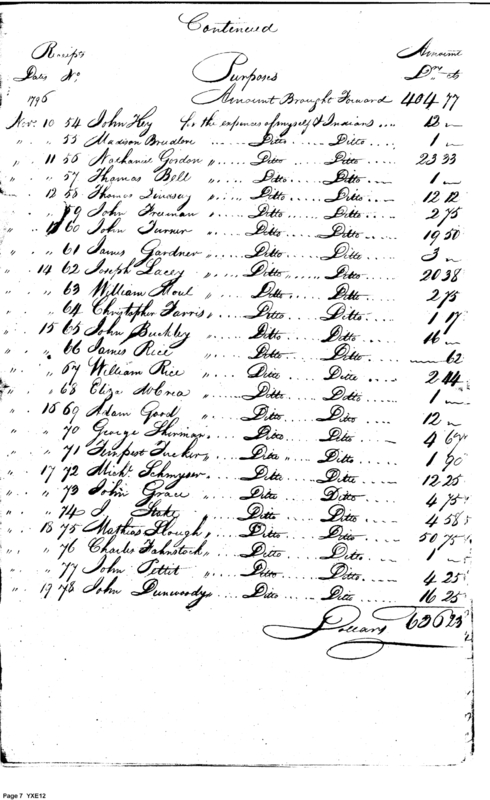 Continued
Receipts Amount
Dates No. Purposes Drs cts
1796 Amount Brought Forward 404 77
Novr. 10 54 John Key for the expences of myself & Indians ... 13 "
" " 55 Madison Ditto Ditto 1 "
" 11 56 Nathaniel Gordon " Ditto Ditto 23 33
" " 57 Thomas Bell " Ditto Ditto 1 "
" 12 58 Thomas Lindsey " Ditto Ditto 12 12
" " 59 John Freeman " Ditto Ditto 2 75
" 60 John Turner " Ditto Ditto 19 50
" " 61 James Gardner " Ditto Ditto 3 "
" 14 62 Joseph Lacey " Ditto Ditto 20 38
" " 63 William " Ditto Ditto 2 75
" " 64 Christopher Farris " Ditto Ditto 1 17
" 15 65 John Buckley " Ditto Ditto 16 "
" " 66 James Rice " Ditto Ditto 62
" " 67 William Rice " Ditto Ditto 2 44
" " 68 Eliza McCrea " Ditto Ditto 1 "
" 69 Adam Gord " Ditto Ditto 12 "
" " 70 George Sherman Ditto Ditto 4
" " 71 Tempest Tucker Ditto Ditto 1 90
" 17 72 Michl. Schmyser Ditto Ditto 12 25
" " 73 John Grace " Ditto Ditto 4 75
" " 74 J. Stake " Ditto Ditto 4 58
" 18 75 Mathias Slough " Ditto Ditto 50 75
" " 76 Charles Fahnstock " Ditto Ditto 1 "
" " 77 John Pettit " Ditto Ditto 4 25
" 19 78 John Dunwoody " Ditto Ditto 16 25
Dollars
Page 7 YXE12